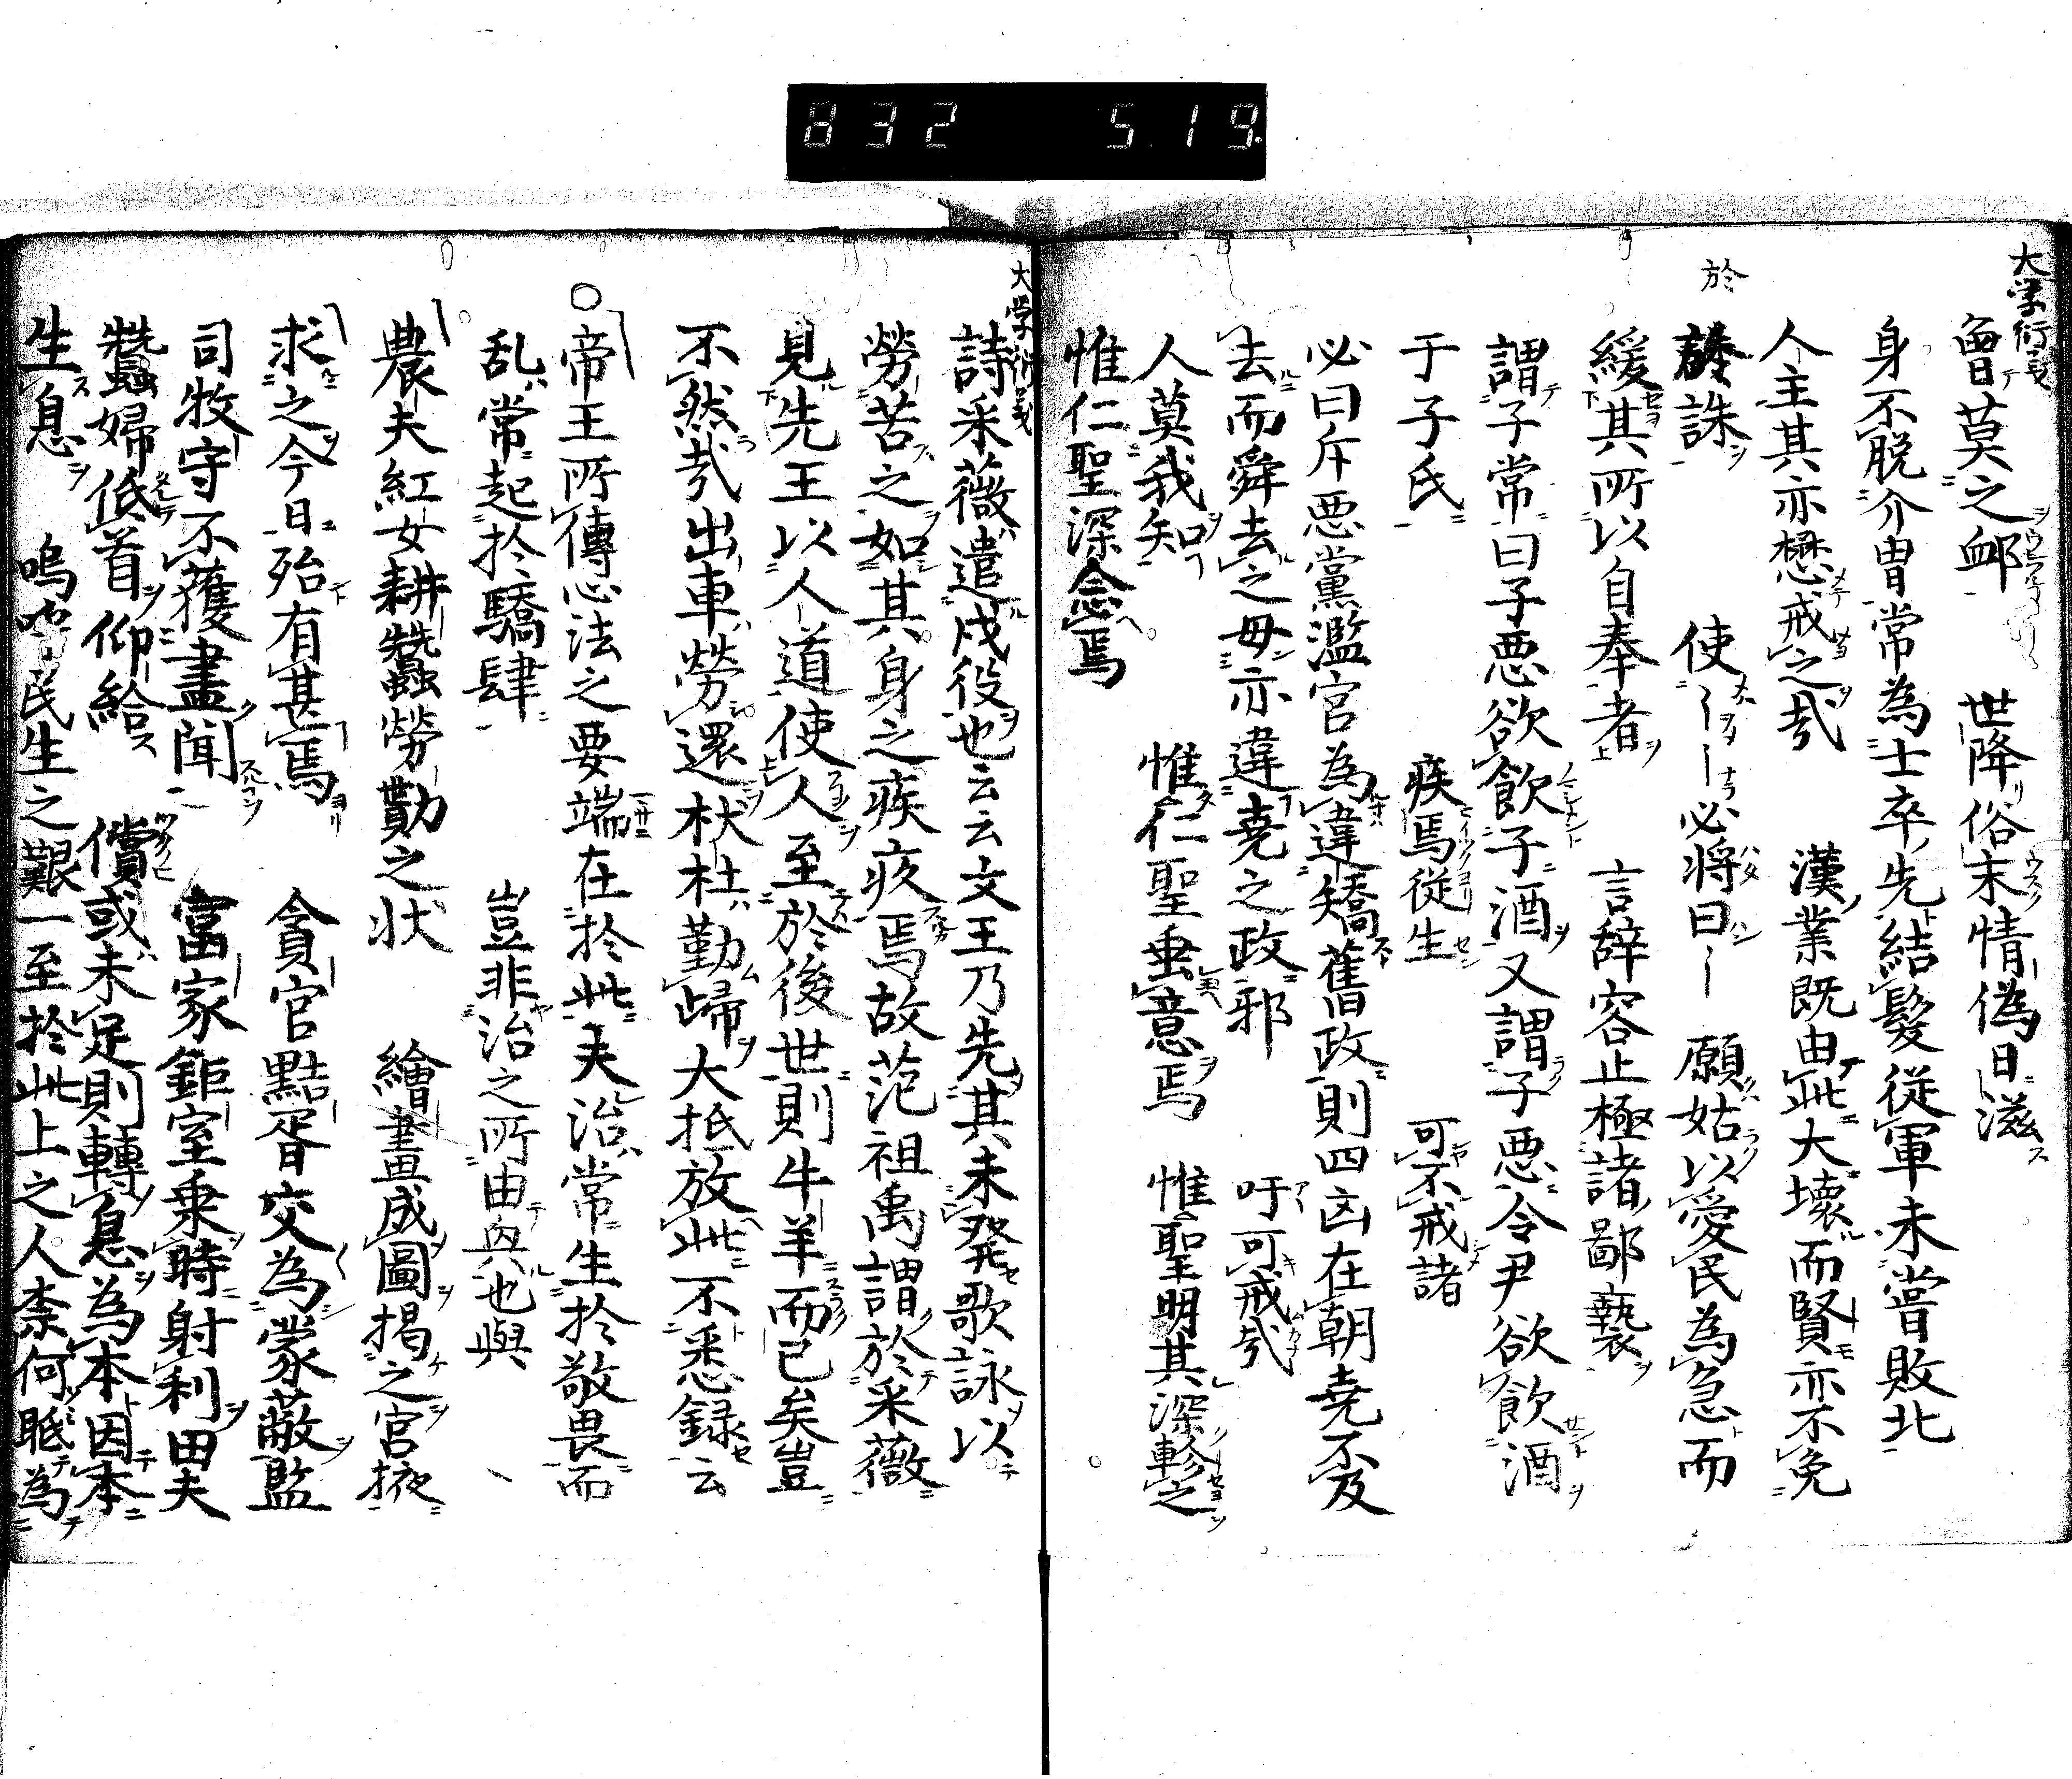 832 519
大学衍義
曽莫之卹 世降俗末情偽日滋
身不脱介冑常為士卒先結髮從軍未嘗敗北
人主其亦懋戒之哉 漢業既由此大壞而賢亦不免
於
誅 使 必將曰 願姑以愛民為急而
緩其所以自奉者 言辞容止極諸鄙褻
謂子常曰子惡欲飲子酒又謂子惡令尹欲飲酒
于子氏 疾焉從生 可不戒諸
必曰斥惡黨濫官為違矯舊政則四凶在朝堯不及
去而舜去之毋亦違堯之政邪 吁可戒哉
人莫我知 惟仁聖垂意焉 惟聖明其深軫之
惟仁聖深念焉
大学衍義
詩采薇遣戍役也云云文王乃先其未発歌詠以
勞苦之如其身之疾疚焉故范祖禹謂於采薇
見先王以人道使人至於後世則牛羊而已矣豈
不然哉出車勞還杕杜勤歸大抵放此不悉録云
○帝王所傳心法之要端在於此夫治常生於敬畏而
乱常起於驕肆 豈非治之所由與也與
農夫紅女耕蠶勞勩之状 繪畫成圖揭之宮掖
求之今日殆有甚焉 貪官黠胥交為蒙蔽監
司牧守不獲盡聞 富家鉅室乗時射利田夫
蠶婦低首仰給 償或未足則轉息為本因本
生息 嗚呼民生之艱一至於此上之人柰何眂為